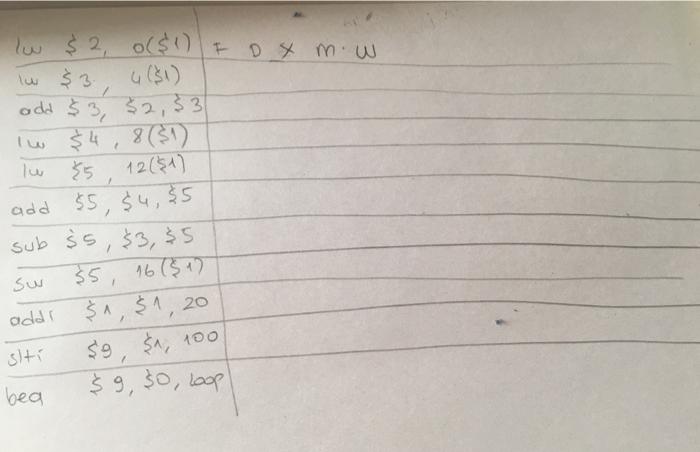 lw $2, 0($1) F D X M W
lw $3, 4($1)
add $3, $2, $3
lw $4, 8($1)
lw $5, 12($1)
add $5, $4, $5
sub $5, $3, $5
sw $5, 16($1)
addi $1, $1, 20
slti $9, $1, 100
beq $9, $0, loop